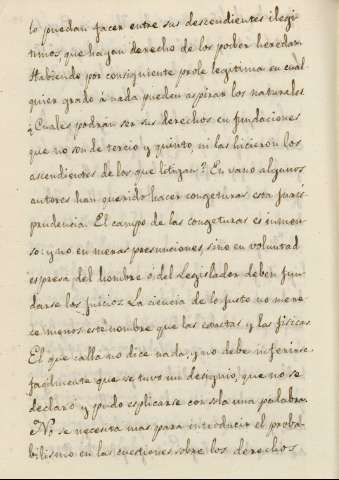 lo puedan facer entre sus descendientes ilegi-
timos, que hayan derecho de los poder heredar.
Habiendo por consiguiente prole legitima en cual-
quier grado á nada pueden aspirar los naturales
¿Cuales podrán ser sus derechos en fundaciones
que no son de tercio y quinto, ni las hicieron los
ascendientes de los que litigan? En vano algunos
autores han querido hacer congeturas esta juris-
prudencia. El campo de las congeturas es inmen-
so: y no en meras presunciones, sino en voluntad
espresa del hombre ó del Legislador deben fun-
darse los juicios. La ciencia de lo justo no mere-
ce menos este nombre que las exactas y las fisicas.
El que calla no dice nada, y no debe inferirse
facilmente que se tuvo un designio, que no se
declaró y pudo esplicarse con sola una palabra.
No se necesita mas para introducir el proba-
bilismo en las cuestiones sobre los derechos